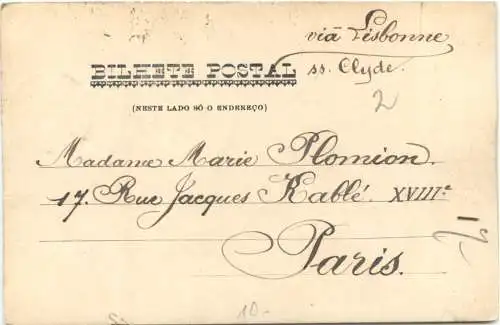 viâ Lisbonne
BILHETE POSTAL
ss. Clyde.
(NESTE LADO SÓ O ENDEREÇO)
2
Madame Marie Plomion.
17. Rue Jacques Kablé. XVIIIe
Paris.
10.-